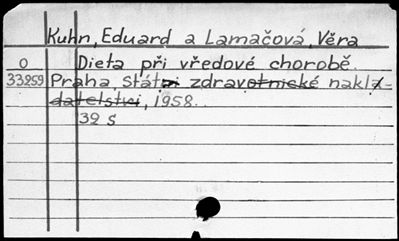 Kuhn, Eduard a Lamačová, Věra
O Dieta při vředové chorobě.
33259 Praha, Státní zdravotnické nakla-
datelství, 1958.
32 s